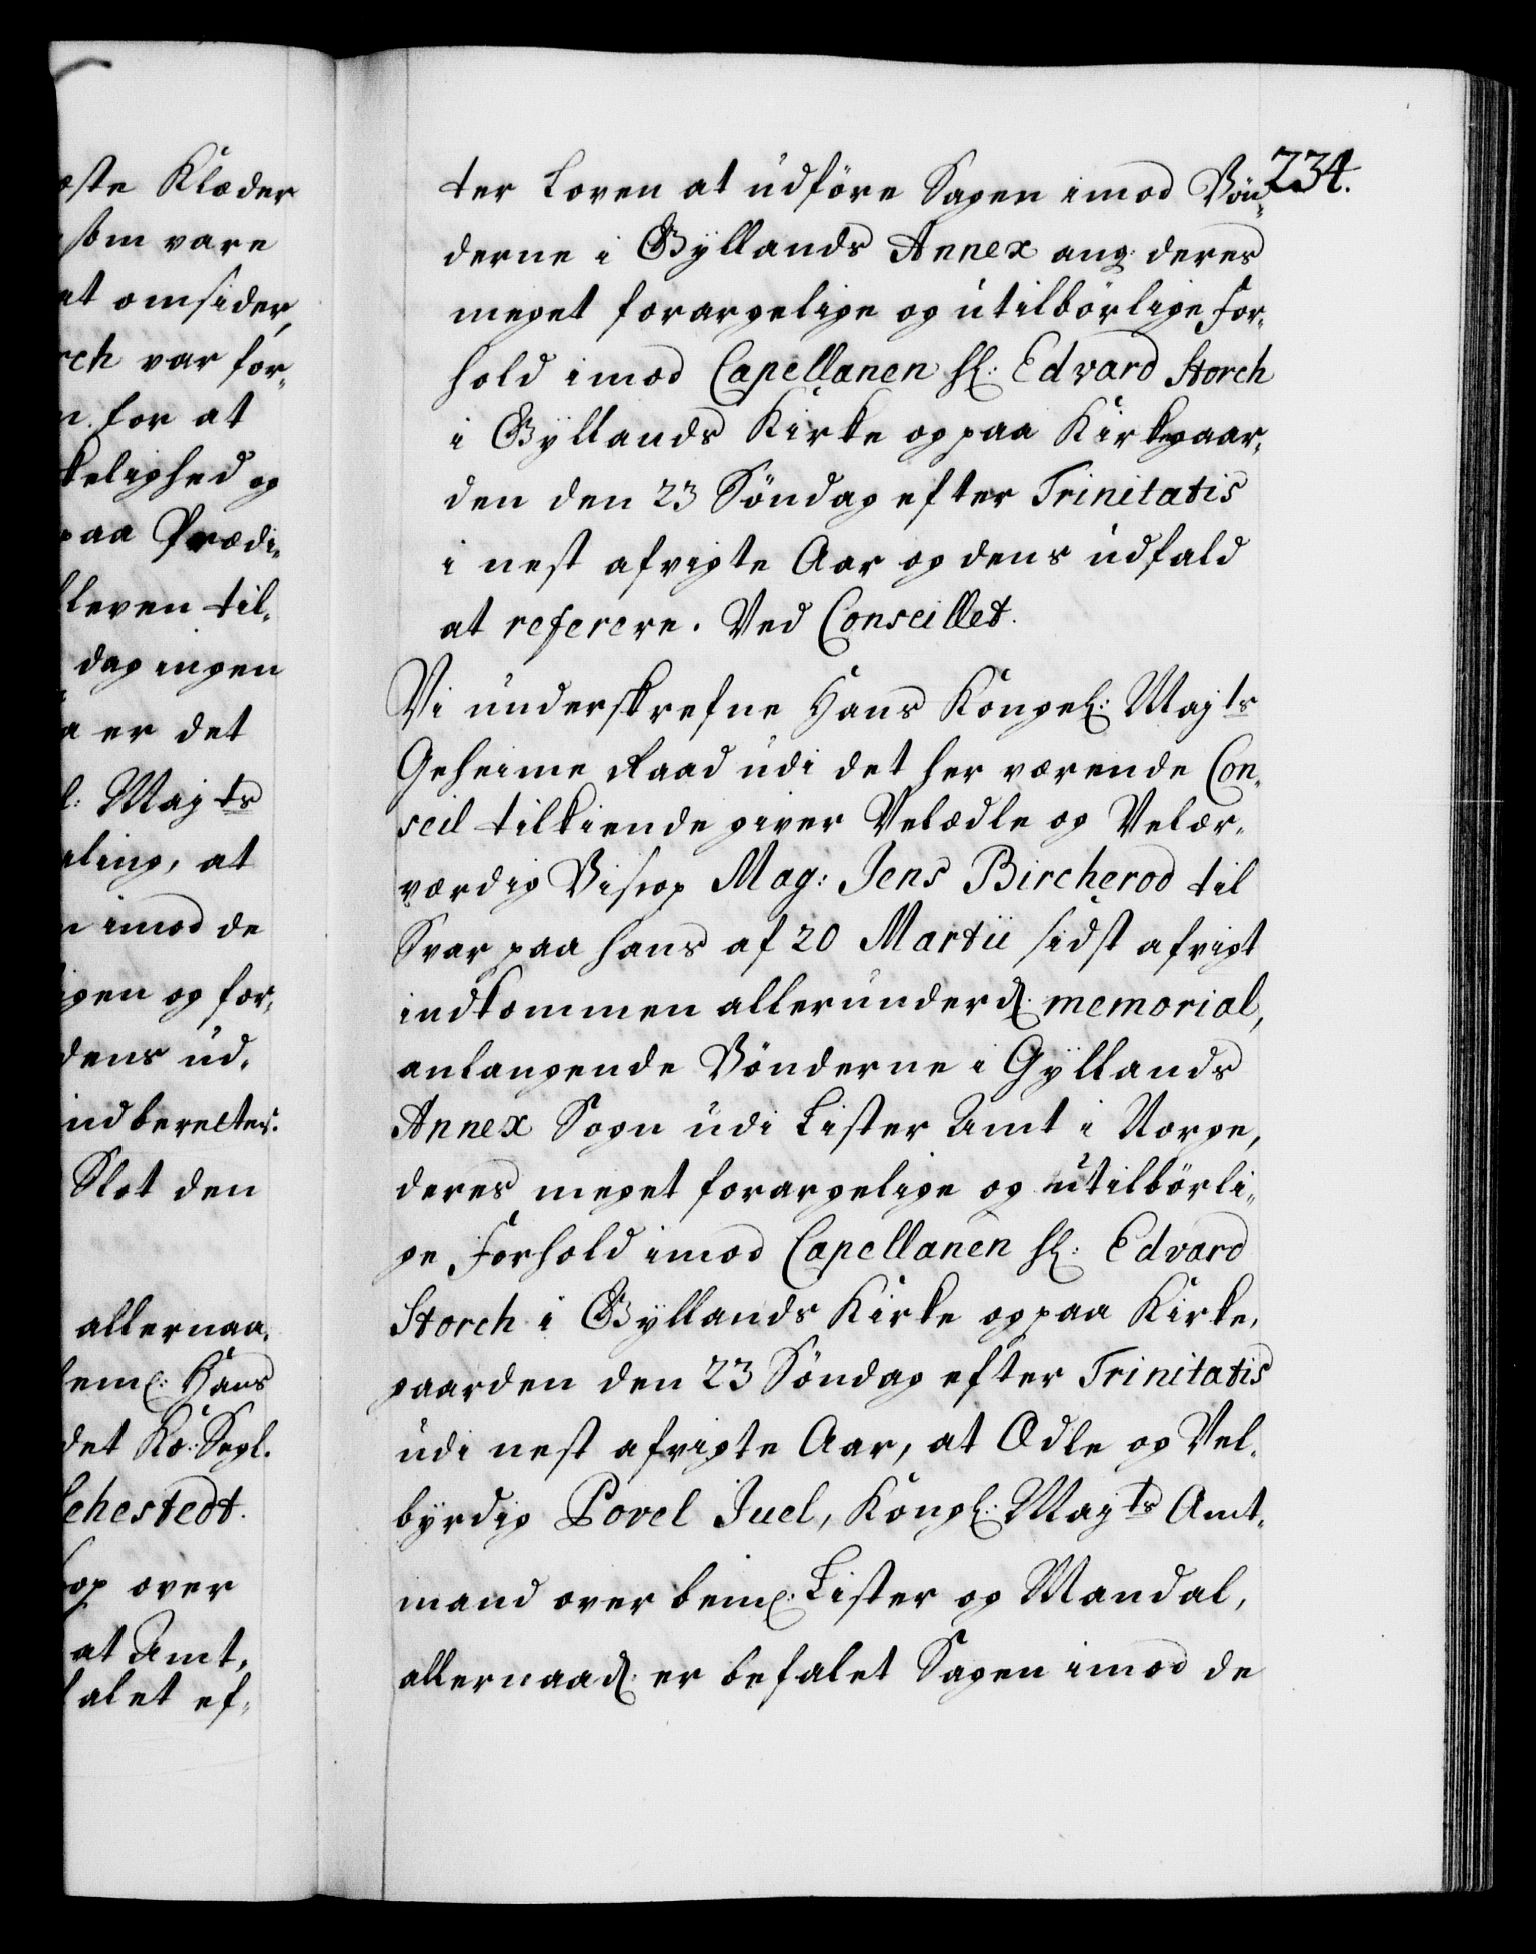 æste Klæder
som vare
et omsider,
rch var for-
n for at
kelighed og
paa Prædi-
lleven til-
dag ingen
a er det
l: Majts
aling, at
n imod de
igen og for-
dens ud-
indberettes.
Slot den
allernaa-
lem: Hans
det Ko: Segl.
ehestedt.
op over
at Amt-
falet ef-
234.
ter Loven at udföre Sagen imod Bön-
derne i Gÿllands Annex ang: deres
meget forargelige og utilbörlige For-
hold imod Capellanen Hl: Edvard Storch
i Gÿllands Kirke og paa Kirkegaar-
den den 23 Söndag efter Trinitatis
i nest afvigte Aar og dens udfald
at referere. Ved Conseillet.
Vi underskrefne Hans Kongel: Majts
Geheime Raad udi det her værende Con-
seil tilkiende giver Velædle og Velær-
værdig Bisop Mag: Jens Bircherod til
Svar paa hans af 20 Martii sidst afvigt
indkommen allerunderd: memorial,
anlangende Bönderne i Gÿllands
Annex Sogn udi Lister Amt i Norge,
deres meget forargelige og utilbörli-
ge Forhold imod Capellanen Hl: Edvard
Storch i Gÿllands Kirke og paa Kirke-
gaarden den 23 Söndag efter Trinitatis
udi nest afvigte Aar, at Ædle og Vel-
bÿrdig Povel Juel, Kongl: Majts Amt-
mand over bem: Lister og Mandal,
allernaad: er befalet Sagen imod de